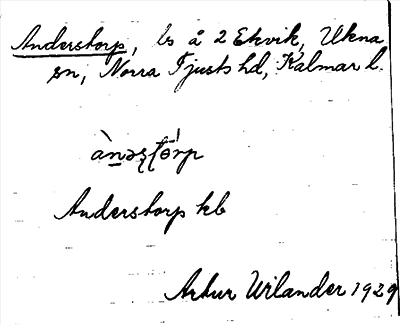 Anderstorp, ls å 2 Ekvik, Ukna
sn, Norra Tjusts hd, Kalmar l.
Anderstorp kb
Artur Wilander 1929